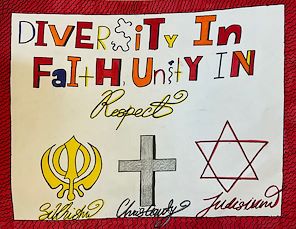 DIVERSity In
FaItH, UnIty IN
Respect
Sikhism
Christianity
Judaism